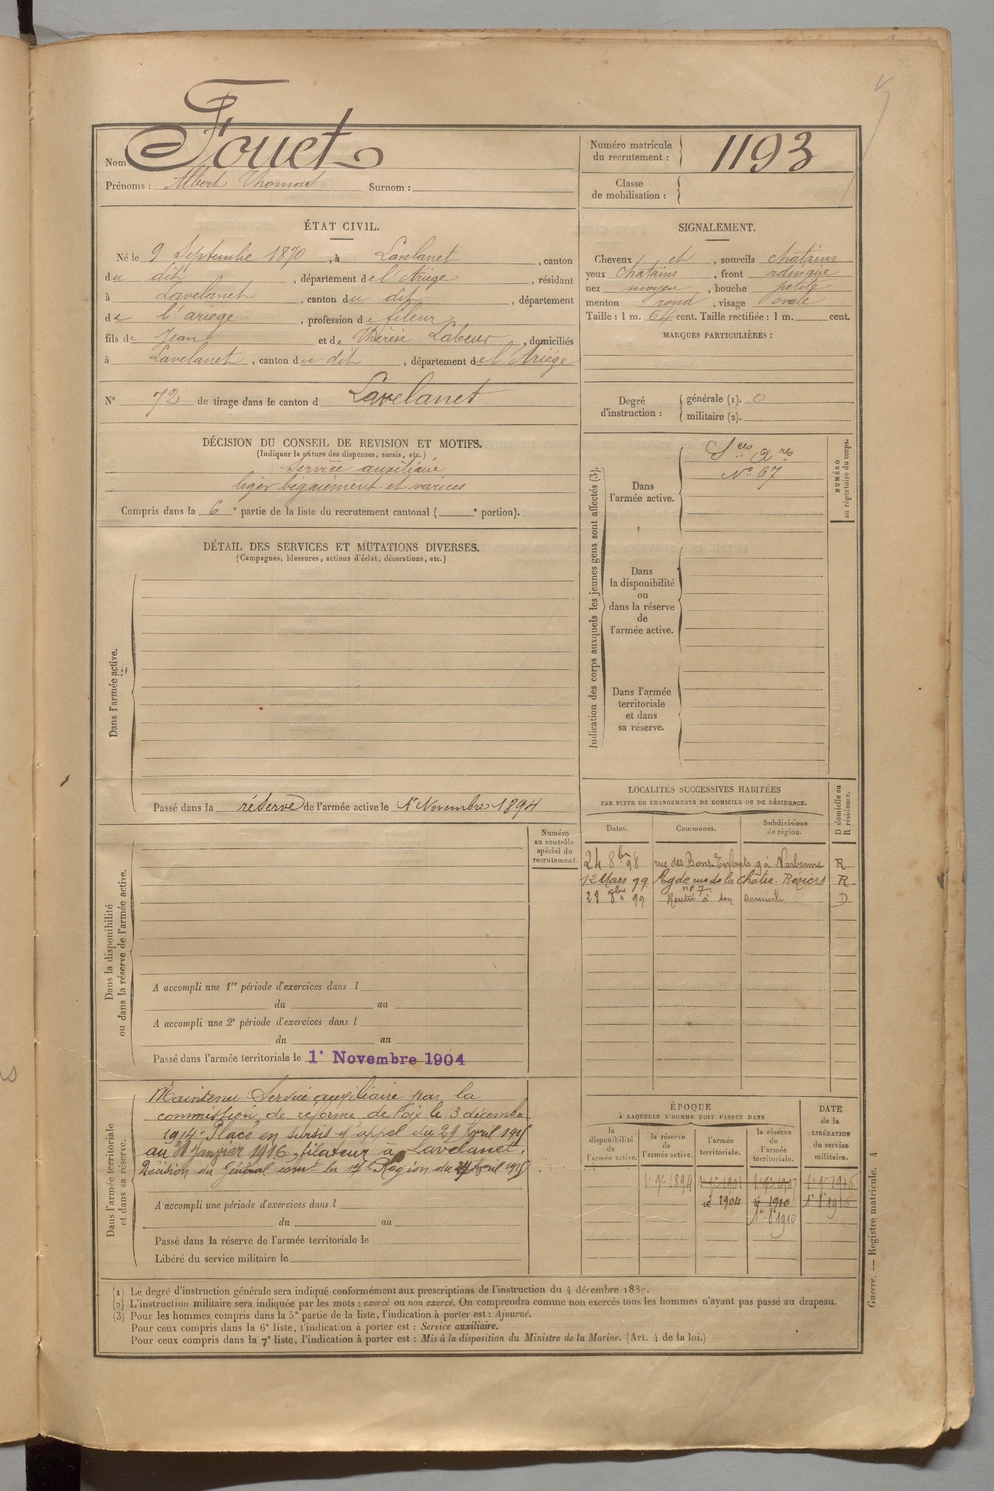 Nom Fouet
Prénoms : Albert Thomas Surnom :
Numéro matricule
du recrutement : 1193
Classe
de mobilisation :
ÉTAT CIVIL.
Né le 9 Septembre 1870, à Lavelanet, canton
du dit, département de l'Ariège, résidant
à Lavelanet, canton du dit, département
de l'ariège, profession de fileur
fils de Jean et de Thérèse Labeur, domiciliés
à Lavelanet, canton du dit, département de l'Ariège
N° 72 de tirage dans le canton d Lavelanet
SIGNALEMENT.
Cheveux et, sourcils chatains
yeux chatains, front
nez moyen, bouche petite
menton rond, visage ovale
Taille : 1 m. 64 cent. Taille rectifiée : 1 m. cent.
MARQUES PARTICULIÈRES :
Degré
d'instruction :
générale (1). 0
militaire (2).
DÉCISION DU CONSEIL DE REVISION ET MOTIFS.
(Indiquer la nature des dispenses, sursis, etc.)
Service auxiliaire
léger bégaiement et varices
Compris dans la 6e partie de la liste du recrutement cantonal ( e portion).
DÉTAIL DES SERVICES ET MUTATIONS DIVERSES.
(Campagnes, blessures, actions d'éclat, décorations, etc.)
Dans l'armée active.
Passé dans la réserve de l'armée active le 1er Novembre 1894
Indication des corps auxquels les jeunes gens sont affectés (3).
NUMÉRO
au répertoire du corps.
Dans
l'armée active.
Sces Xres
N° 67
Dans
la disponibilité
ou
dans la réserve
de
l'armée active.
Dans l'armée
territoriale
et dans
sa réserve.
LOCALITÉS SUCCESSIVES HABITÉES
PAR SUITE DE CHANGEMENTS DE DOMICILE OU DE RÉSIDENCE.
D domicile ou
R résidence.
Dates. Communes. Subdivisions
de région.
24 8bre 98 rue des Bons Enfants 9 à Narbonne R
12 Mars 99 Agde rue de la Châtie. Béziers R
n° 7
28 8bre 99 Rentré à son Domicile D
Numéro
au contrôle
spécial du
recrutement.
Dans la disponibilité
ou dans la réserve de l'armée active.
A accompli une 1re période d'exercices dans l
du au
A accompli une 2e période d'exercices dans l
du au
Passé dans l'armée territoriale le 1er Novembre 1904
Dans l'armée territoriale
et dans sa réserve.
Maintenu Service auxiliaire par la
commission de réforme de Foix le 3 décembre
1914. Placé en sursis d'appel du 29 Avril 1915
au 31 Janvier 1916, filateur à Lavelanet.
Décision du Général comt la 17e Région du 27 Avril 1915
A accompli une période d'exercices dans l
du au
Passé dans la réserve de l'armée territoriale le
Libéré du service militaire le
ÉPOQUE
À LAQUELLE L'HOMME DOIT PASSER DANS
DATE
de la
LIBÉRATION
du service
militaire.
la
disponibilité
de
l'armée active.
la réserve
de
l'armée active.
l'armée
territoriale.
la réserve
de
l'armée
territoriale.
1er 9bre 1894
1904 1910
1910
(1) Le degré d'instruction générale sera indiqué conformément aux prescriptions de l'instruction du 4 décembre 1889.
(2) L'instruction militaire sera indiquée par les mots : exercé ou non exercé. On comprendra comme non exercés tous les hommes n'ayant pas passé au drapeau.
(3) Pour les hommes compris dans la 5e partie de la liste, l'indication à porter est : Ajourné.
Pour ceux compris dans la 6e liste, l'indication à porter est : Service auxiliaire.
Pour ceux compris dans la 7e liste, l'indication à porter est : Mis à la disposition du Ministre de la Marine. (Art. 4 de la loi.)
Guerre. — Registre matricule. 4